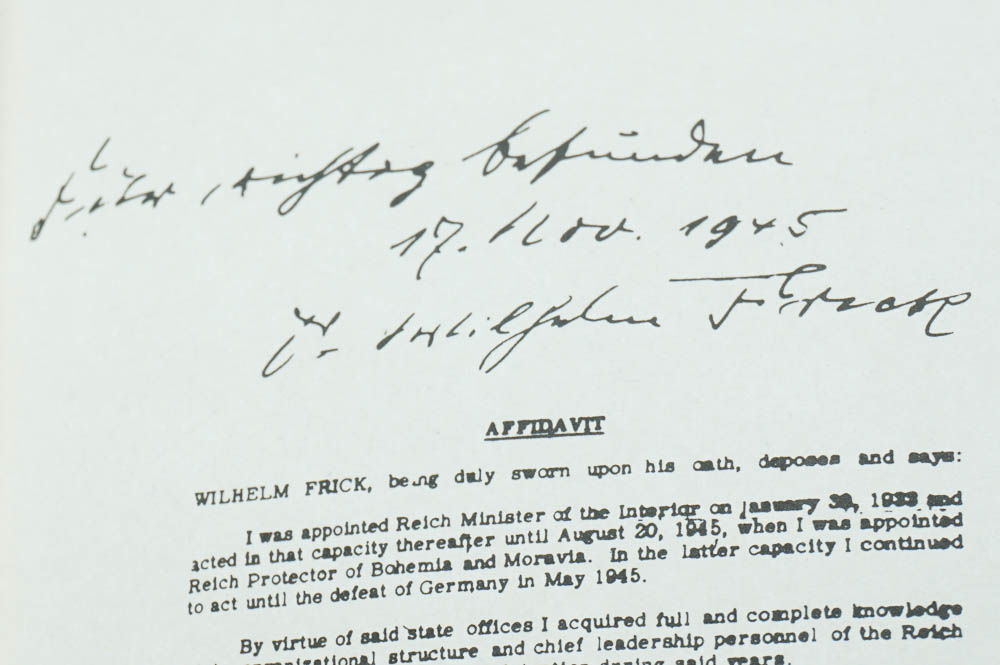 Für richtig befunden
17. Nov. 1945
Dr. Wilhelm Frick
AFFIDAVIT
WILHELM FRICK, being duly sworn upon his oath, deposes and says:
I was appointed Reich Minister of the Interior on January 30, 1933 and
acted in that capacity thereafter until August 20, 1945, when I was appointed
Reich Protector of Bohemia and Moravia. In the latter capacity I continued
to act until the defeat of Germany in May 1945.
By virtue of said state offices I acquired full and complete knowledge
organizational structure and chief leadership personnel of the Reich
during said years.